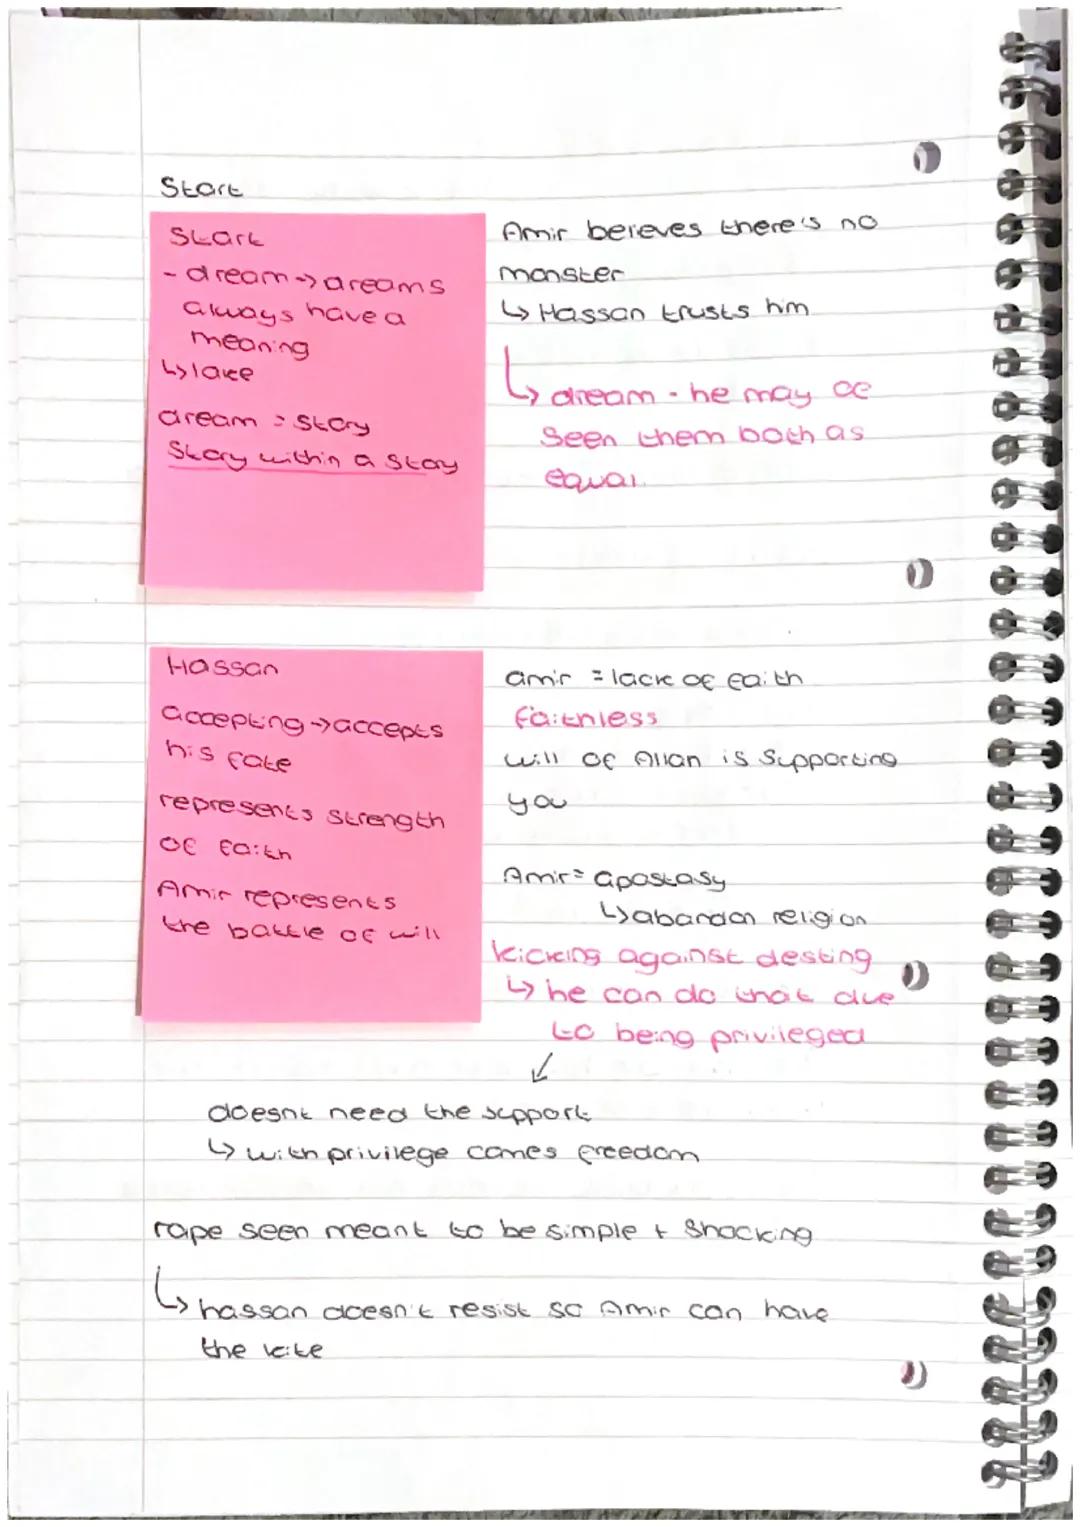 Start
Start
- dream → dreams
always have a
meaning
↳ lake
dream = story
Story within a story
Amir beleves there's no
monster
↳ Hassan trusts him
↳ dream - he may of
seen them both as
equal.
Hassan
accepting → accepts
his fate
represents strength
of faith
Amir represents
the battle of will
amir = lack of faith
faithless
will of Allah is supporting
you
Amir = apostasy
↳ abandon religion
kicking against destiny
↳ he can do that due
to being privileged
↙
doesnt need the support
↳ with privilege comes freedom
rape seen meant to be simple + shocking
↳ hassan doesn't resist so Amir can have
the kite